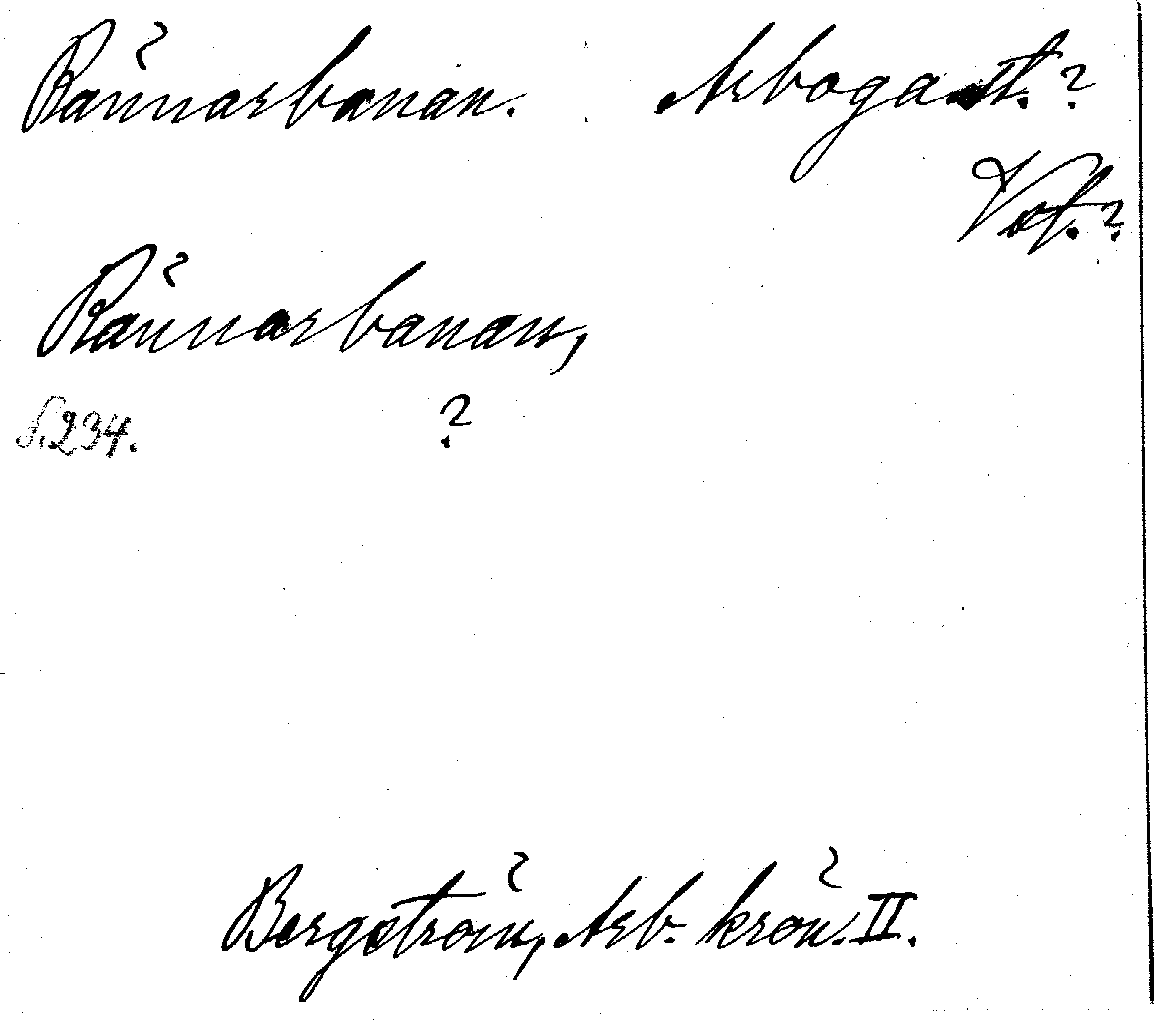 Rännarbanan. Arboga st.?
Vstm.?
Rännarbanan,
s. 234. ?
Bergström, Arb. krön. II.